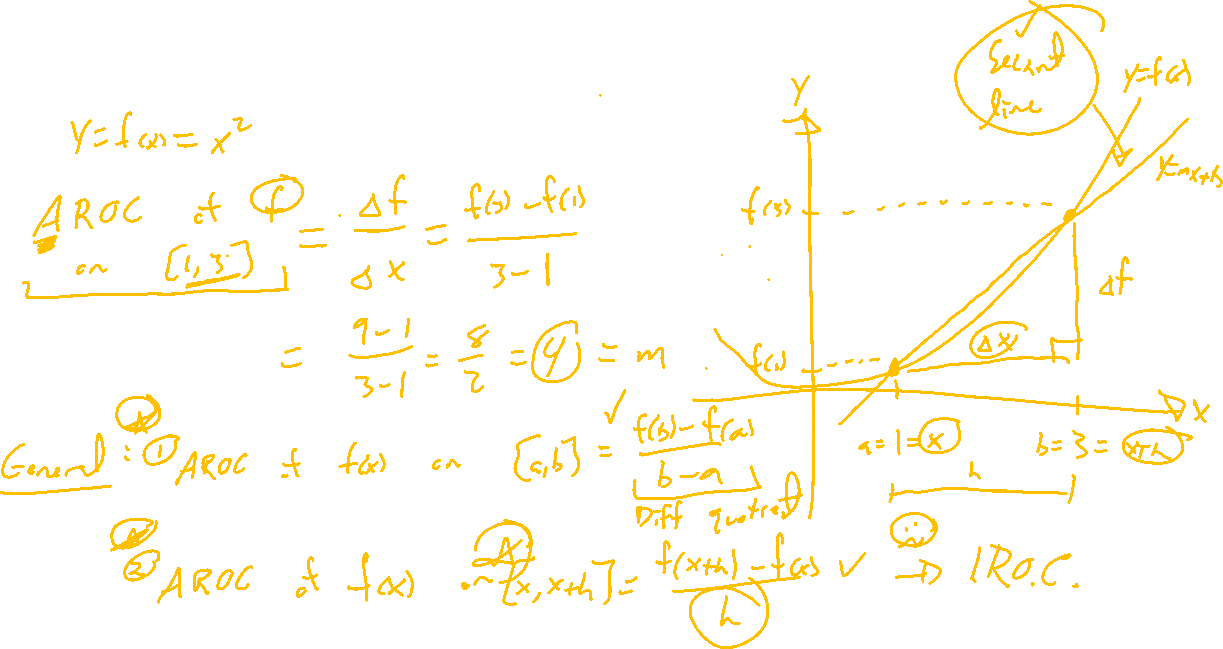 y = f(x) = x²
AROC of f on [1, 3] = Δf/Δx = (f(3) - f(1))/(3 - 1)
= (9 - 1)/(3 - 1) = 8/2 = 4 = m
General : ① AROC of f(x) on [a, b] = (f(b) - f(a))/(b - a) ✓
Diff quotient
② AROC of f(x) on [x, x+h] = (f(x+h) - f(x))/h ✓ → I R.O.C.
Secant
line
y = f(x)
y = mx + b
Y
f(3)
Δf
f(1)
Δx
X
a = 1 = x
b = 3 = x+h
h